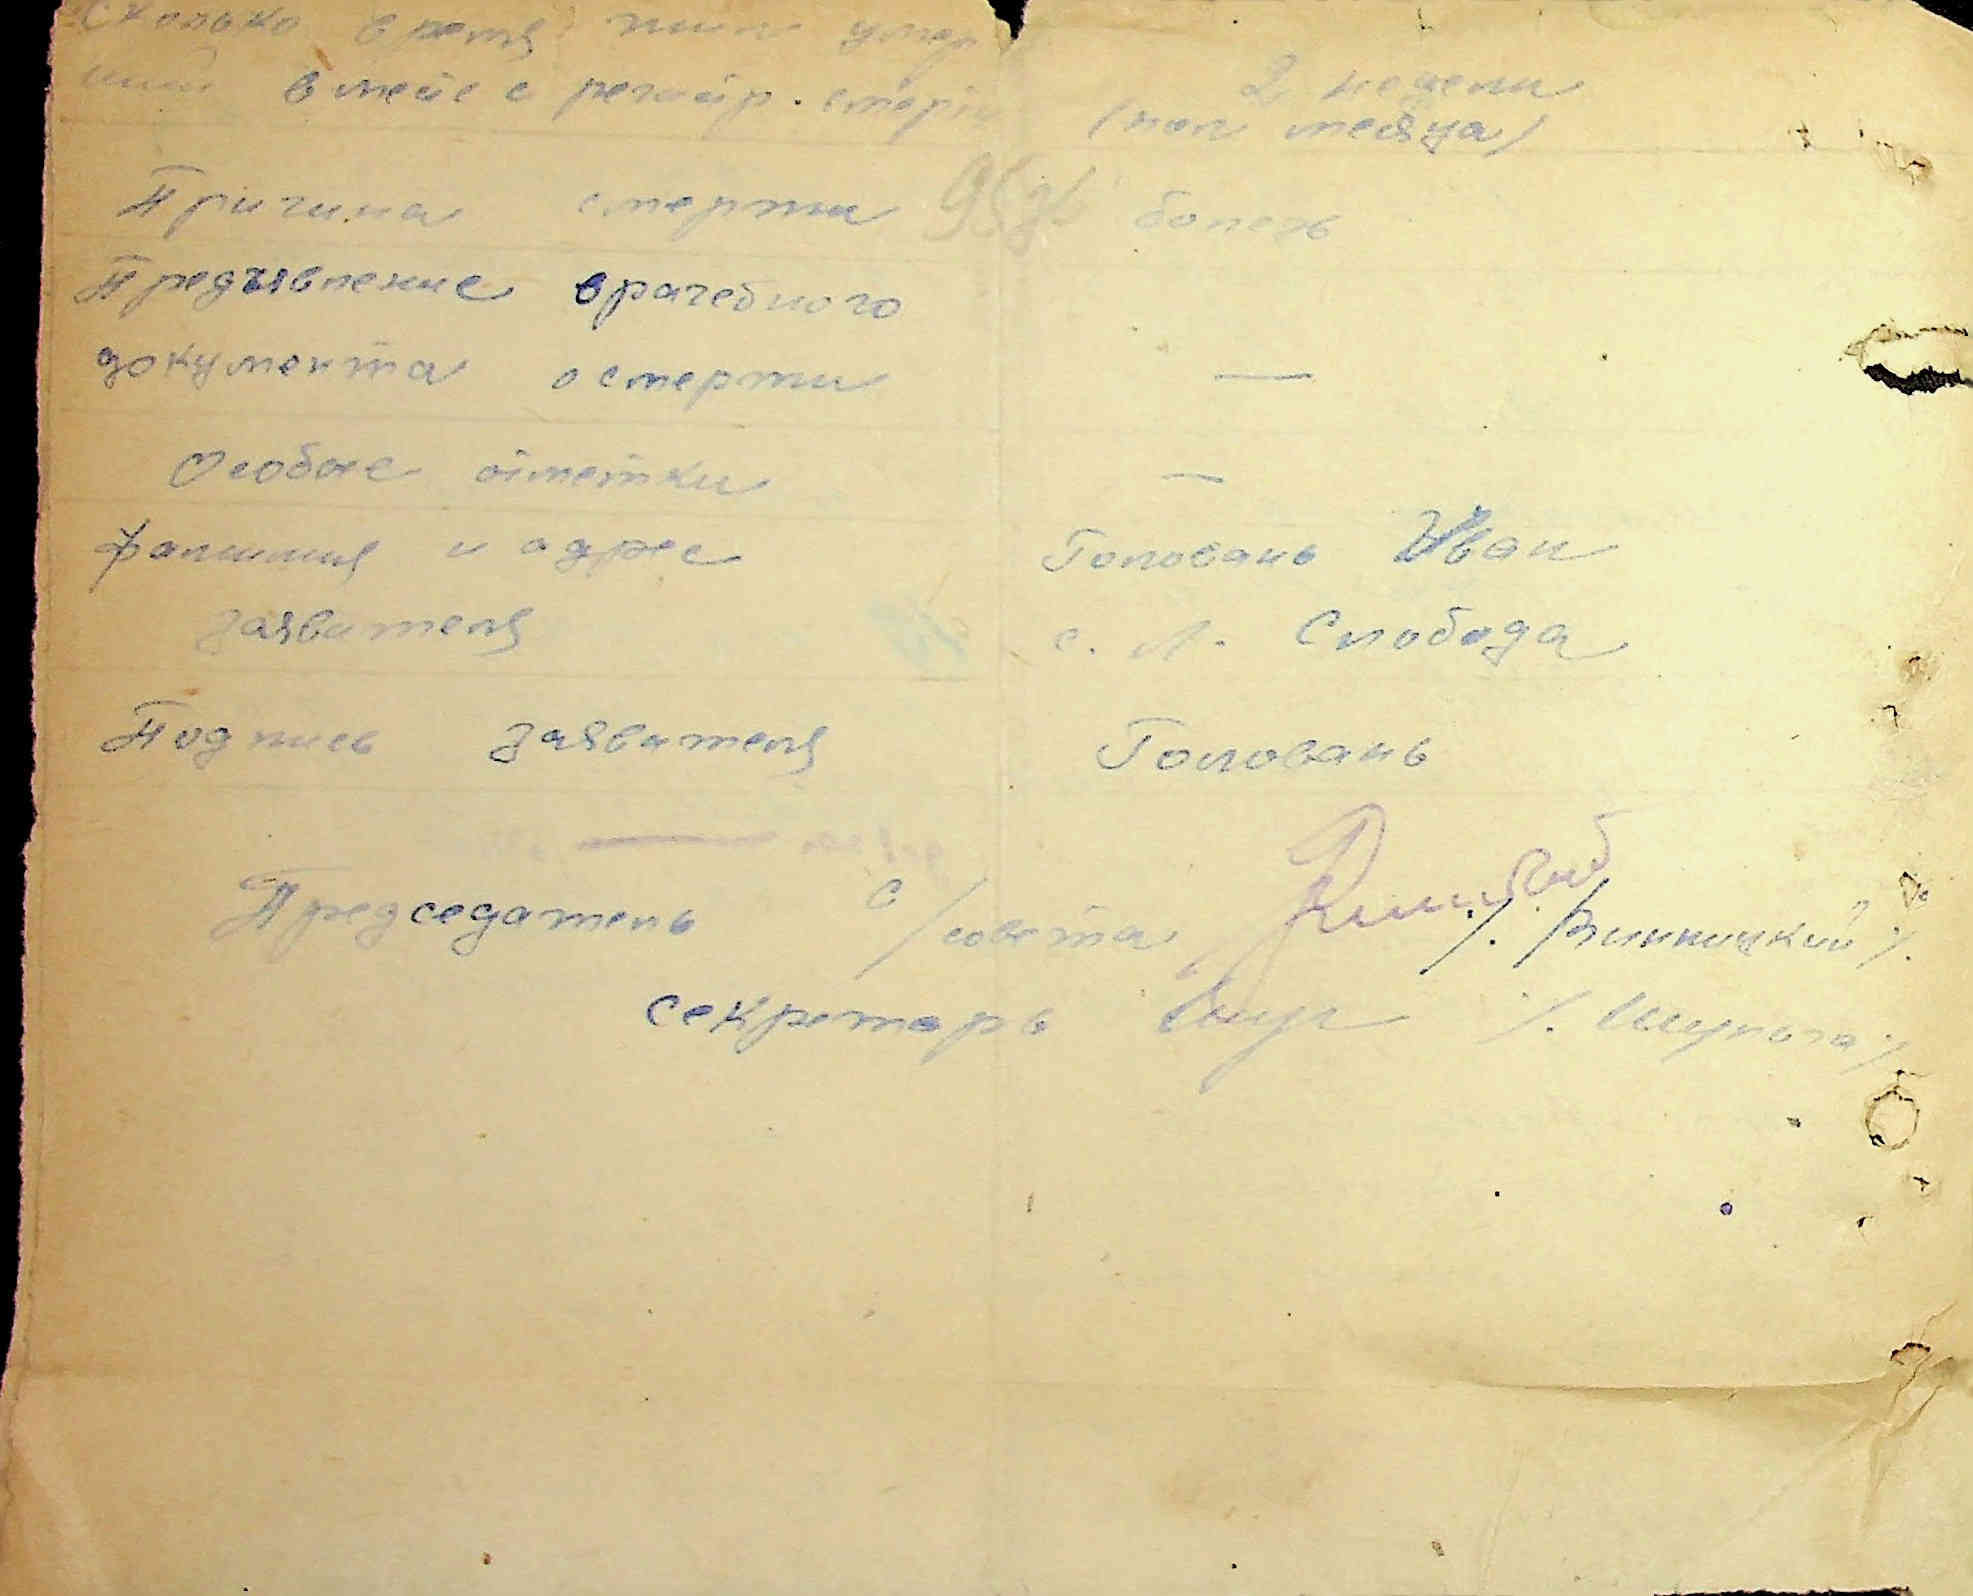 сколько время жил умер
ший в месте регистр. смерти
2 недели
(пол месяца)
Причина смерти болезь
Предъявление врачебного
документа о смерти —
Особые отметки —
Фамилия и адрес Головань Иван
заявителя с. Л. Слобода
Подпись заявителя Головань
Председатель с/совета /. Винницкий /.
секретарь /. Шульга /